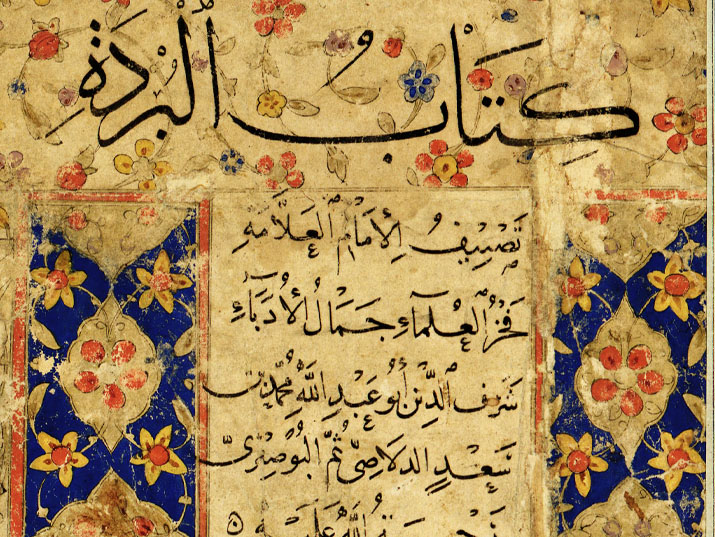 كِتَابُ الْبُرْدَةِ
تَصْنِيفُ الْإِمَامِ الْعَلَّامَةِ
فَخْرُ الْعُلَمَاءِ جَمَالُ الْأُدَبَاءِ
شَرَفِ الدِّينِ أَبُو عَبْدِ اللَّهِ مُحَمَّد بْن
سَعِيْدٍ الدلَاصِيّ ثُمَّ الْبُوْصِيْرِيّ
اللَّهِ عَلَيْهِ